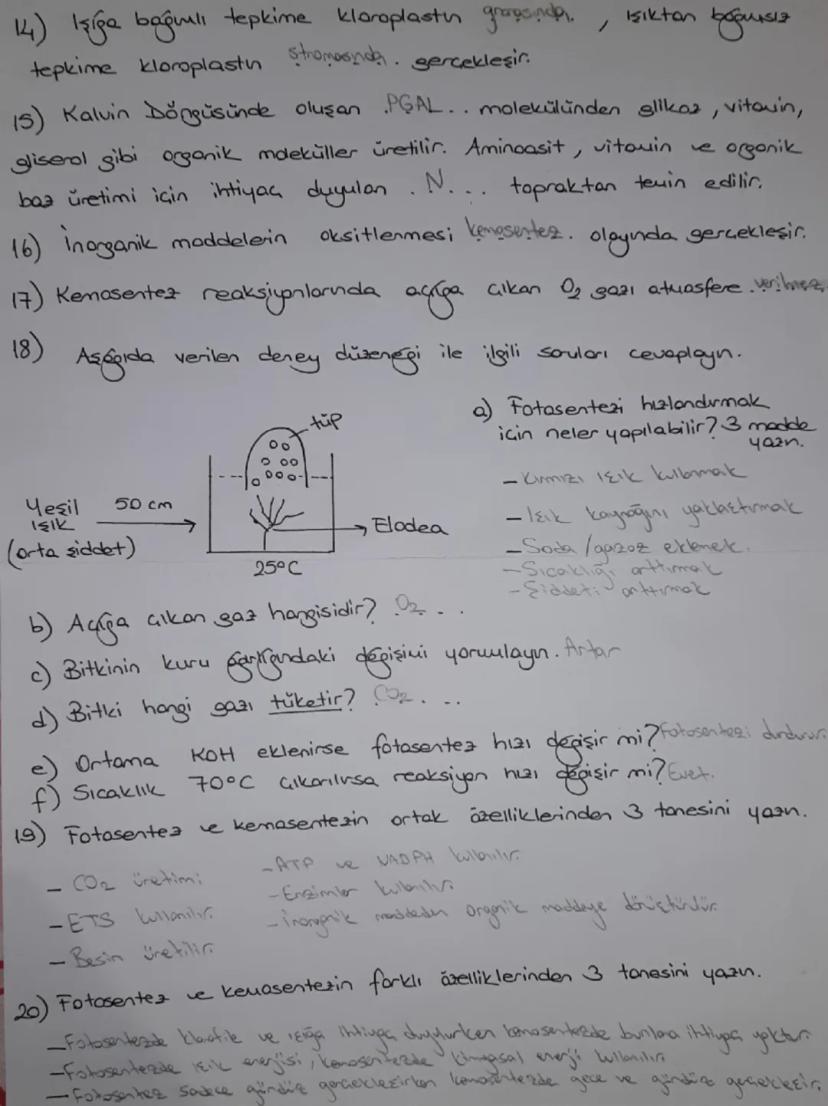 14) Işığa bağımlı tepkime kloroplastın granasında. , ışıktan bağımsız
tepkime kloroplastın stromasında. gerçekleşir.
15) Kalvin Döngüsünde oluşan .PGAL.. molekülünden glikoz, vitamin,
gliserol gibi organik moleküller üretilir. Aminoasit, vitamin ve organik
baz üretimi için ihtiyaç duyulan .N... topraktan temin edilir.
16) İnorganik maddelerin oksitlenmesi kemosentez. olayında gerçekleşir.
17) Kemosentez reaksiyonlarında açığa çıkan O₂ gazı atmosfere .verilmez
18) Aşağıda verilen deney düzeneği ile ilgili soruları cevaplayın.
tüp
Yeşil ışık
(orta şiddet)
50 cm
Elodea
25°C
a) Fotosentezi hızlandırmak
için neler yapılabilir? 3 madde
yazın.
- Kırmızı ışık kullanmak
- Işık kaynağını yaklaştırmak
- Soda / gazoz eklemek.
- Sıcaklığı arttırmak
- Şiddeti arttırmak
b) Açığa çıkan gaz hangisidir? .O₂. ..
c) Bitkinin kuru ağırlığındaki değişimi yorumlayın. Artar
d) Bitki hangi gazı tüketir? .CO₂. ..
e) Ortama KOH eklenirse fotosentez hızı değişir mi? Fotosentezi durdurur.
f) Sıcaklık 70°C çıkarılırsa reaksiyon hızı değişir mi? Evet.
19) Fotosentez ve kemosentezin ortak özelliklerinden 3 tanesini yazın.
- CO₂ üretimi
- ETS kullanılır.
- Besin üretilir.
- ATP ve NADPH kullanılır.
- Enzimler kullanılır.
- İnorganik maddeden organik maddeye dönüştürülür.
20) Fotosentez ve kemosentezin farklı özelliklerinden 3 tanesini yazın.
- Fotosentezde klorofile ve ışığa ihtiyaç duyulurken kemosentezde bunlara ihtiyaç yoktur.
- Fotosentezde ışık enerjisi, kemosentezde kimyasal enerji kullanılır.
- Fotosentez sadece gündüz gerçekleşirken kemosentezde gece ve gündüz gerçekleşir.